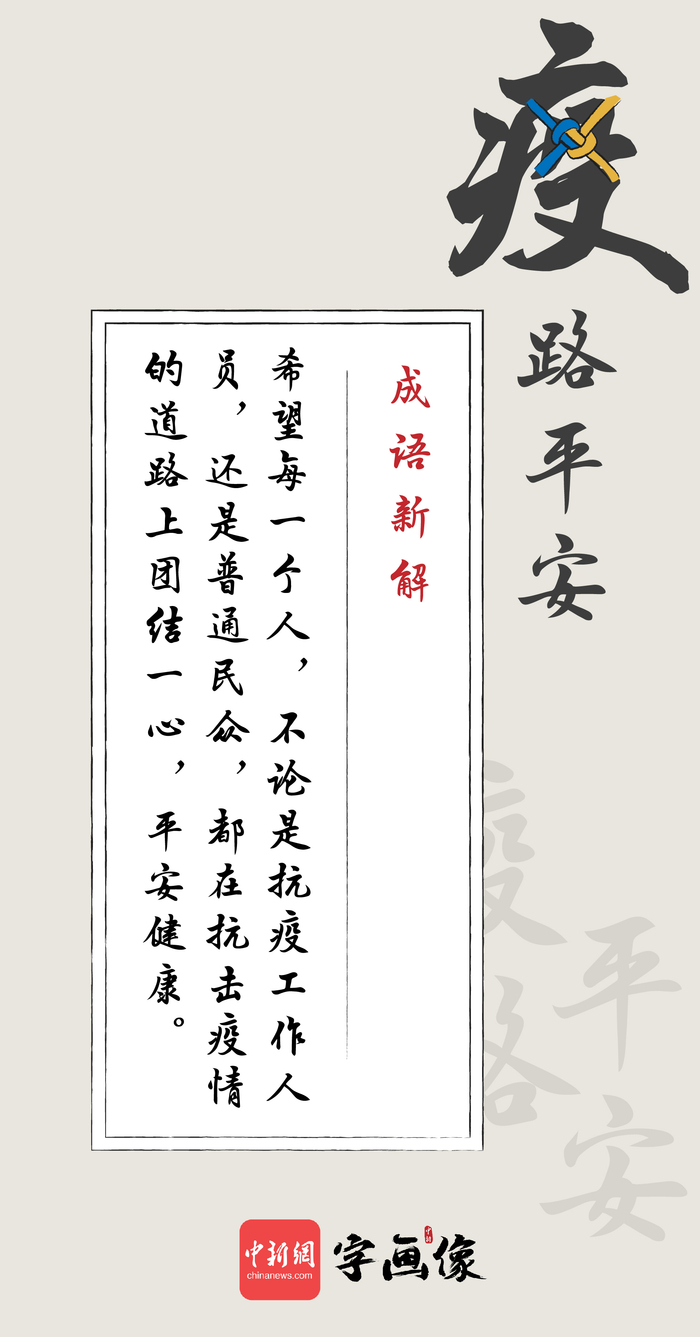 疫路平安
成语新解
希望每一个人，不论是抗疫工作人
员，还是普通民众，都在抗击疫情
的道路上团结一心，平安健康。
疫路
平安
中新網
chinanews.com
字画像